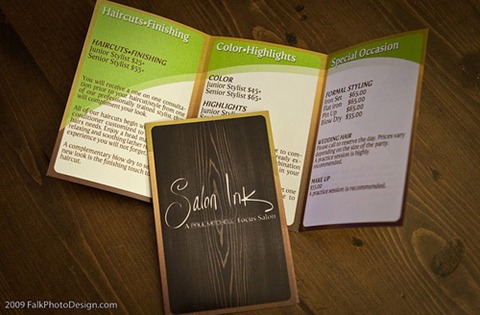 Haircuts•Finishing
HAIRCUTS•FINISHING
Junior Stylist $25+
Senior Stylist $55+
You will receive a one on one consulta-
tion prior to your haircut/style from one
of our professionally trained stylist that
will compliment your look.
All of our haircuts begin
conditioner customized to
hairs needs. Enjoy a head
relaxing and soothing lather
experience you will not forget
A complimentary blow dry to
new look is the finishing touch
haircut.
Color•Highlights
COLOR
Junior Stylist $45+
Senior Stylist $65+
HIGHLIGHTS
Junior Stylist
to com-
Special Occasion
FORMAL STYLING
Iron Set $65.00
Flat Iron $65.00
Pin Up $85.00
Blow Dry $55.00
WEDDING HAIR
Please call to reserve the day. Prices vary
depending on the size of the party.
A practice session is highly
recommended.
MAKE UP
$55.00
A practice session is recommended.
Salon Ink
A PAUL MITCHELL Focus Salon
2009 FalkPhotoDesign.com